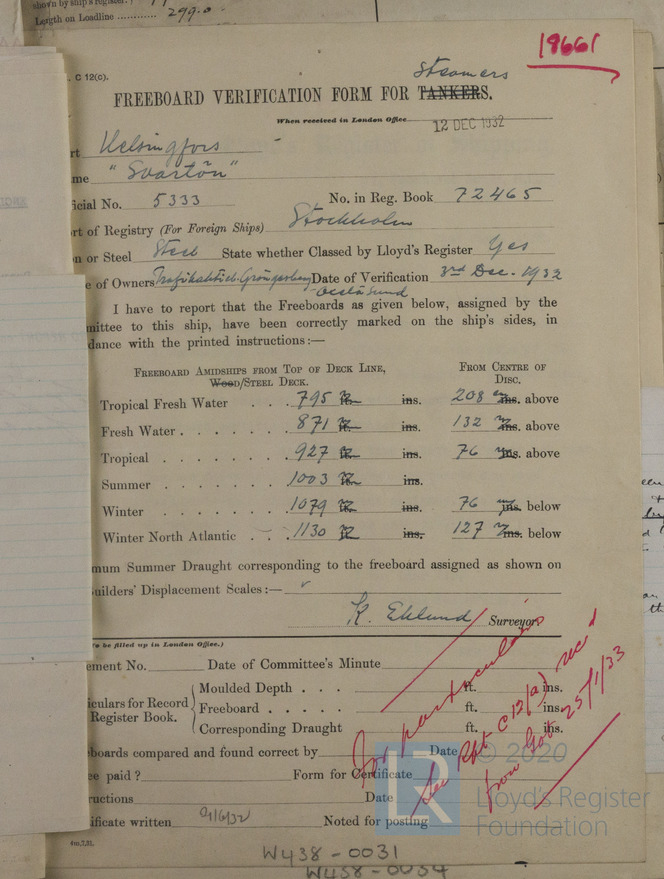 shown by ship's register.
Length on Loadline ............ 299.0
18661
C 12(c).
Steamers
FREEBOARD VERIFICATION FORM FOR TANKERS.
When received in London Office 12 DEC 1932
rt Helsingfors
me "Svartön"
icial No. 5333 No. in Reg. Book 72465
rt of Registry (For Foreign Ships) Stockholm
n or Steel Steel State whether Classed by Lloyd's Register Yes
e of Owners Trafikaktieb. Grängesberg Date of Verification 3rd Dec. 1932
Oxelösund
I have to report that the Freeboards as given below, assigned by the
mittee to this ship, have been correctly marked on the ship's sides, in
dance with the printed instructions:—
FREEBOARD AMIDSHIPS FROM TOP OF DECK LINE, FROM CENTRE OF
WOOD/STEEL DECK. DISC.
Tropical Fresh Water . . . 795 ft. ins. 208 ins. above
Fresh Water . . . . . . . . 871 ft. ins. 132 ins. above
Tropical . . . . . . . . 927 ft. ins. 76 ins. above
Summer . . . . . . . . 1003 ft. ins.
Winter . . . . . . . . 1079 ft. ins. 76 ins. below
Winter North Atlantic . . . 1130 ft. ins. 127 ins. below
mum Summer Draught corresponding to the freeboard assigned as shown on
uilders' Displacement Scales:—
K. Eklund Surveyor
To be filled up in London Office.)
ement No. Date of Committee's Minute
iculars for Record Register Book.
Moulded Depth . . . . ft. ins.
Freeboard . . . . . ft. ins.
Corresponding Draught ft. ins.
For particulars
see Rpt C12(a) rec'd
from Got 25/1/33
boards compared and found correct by Date
ee paid ? Form for Certificate
ructions Date
ificate written Noted for posting
4m,7,31.
© 2020
LR
Lloyd's Register
Foundation
W438-0031
W438-0034